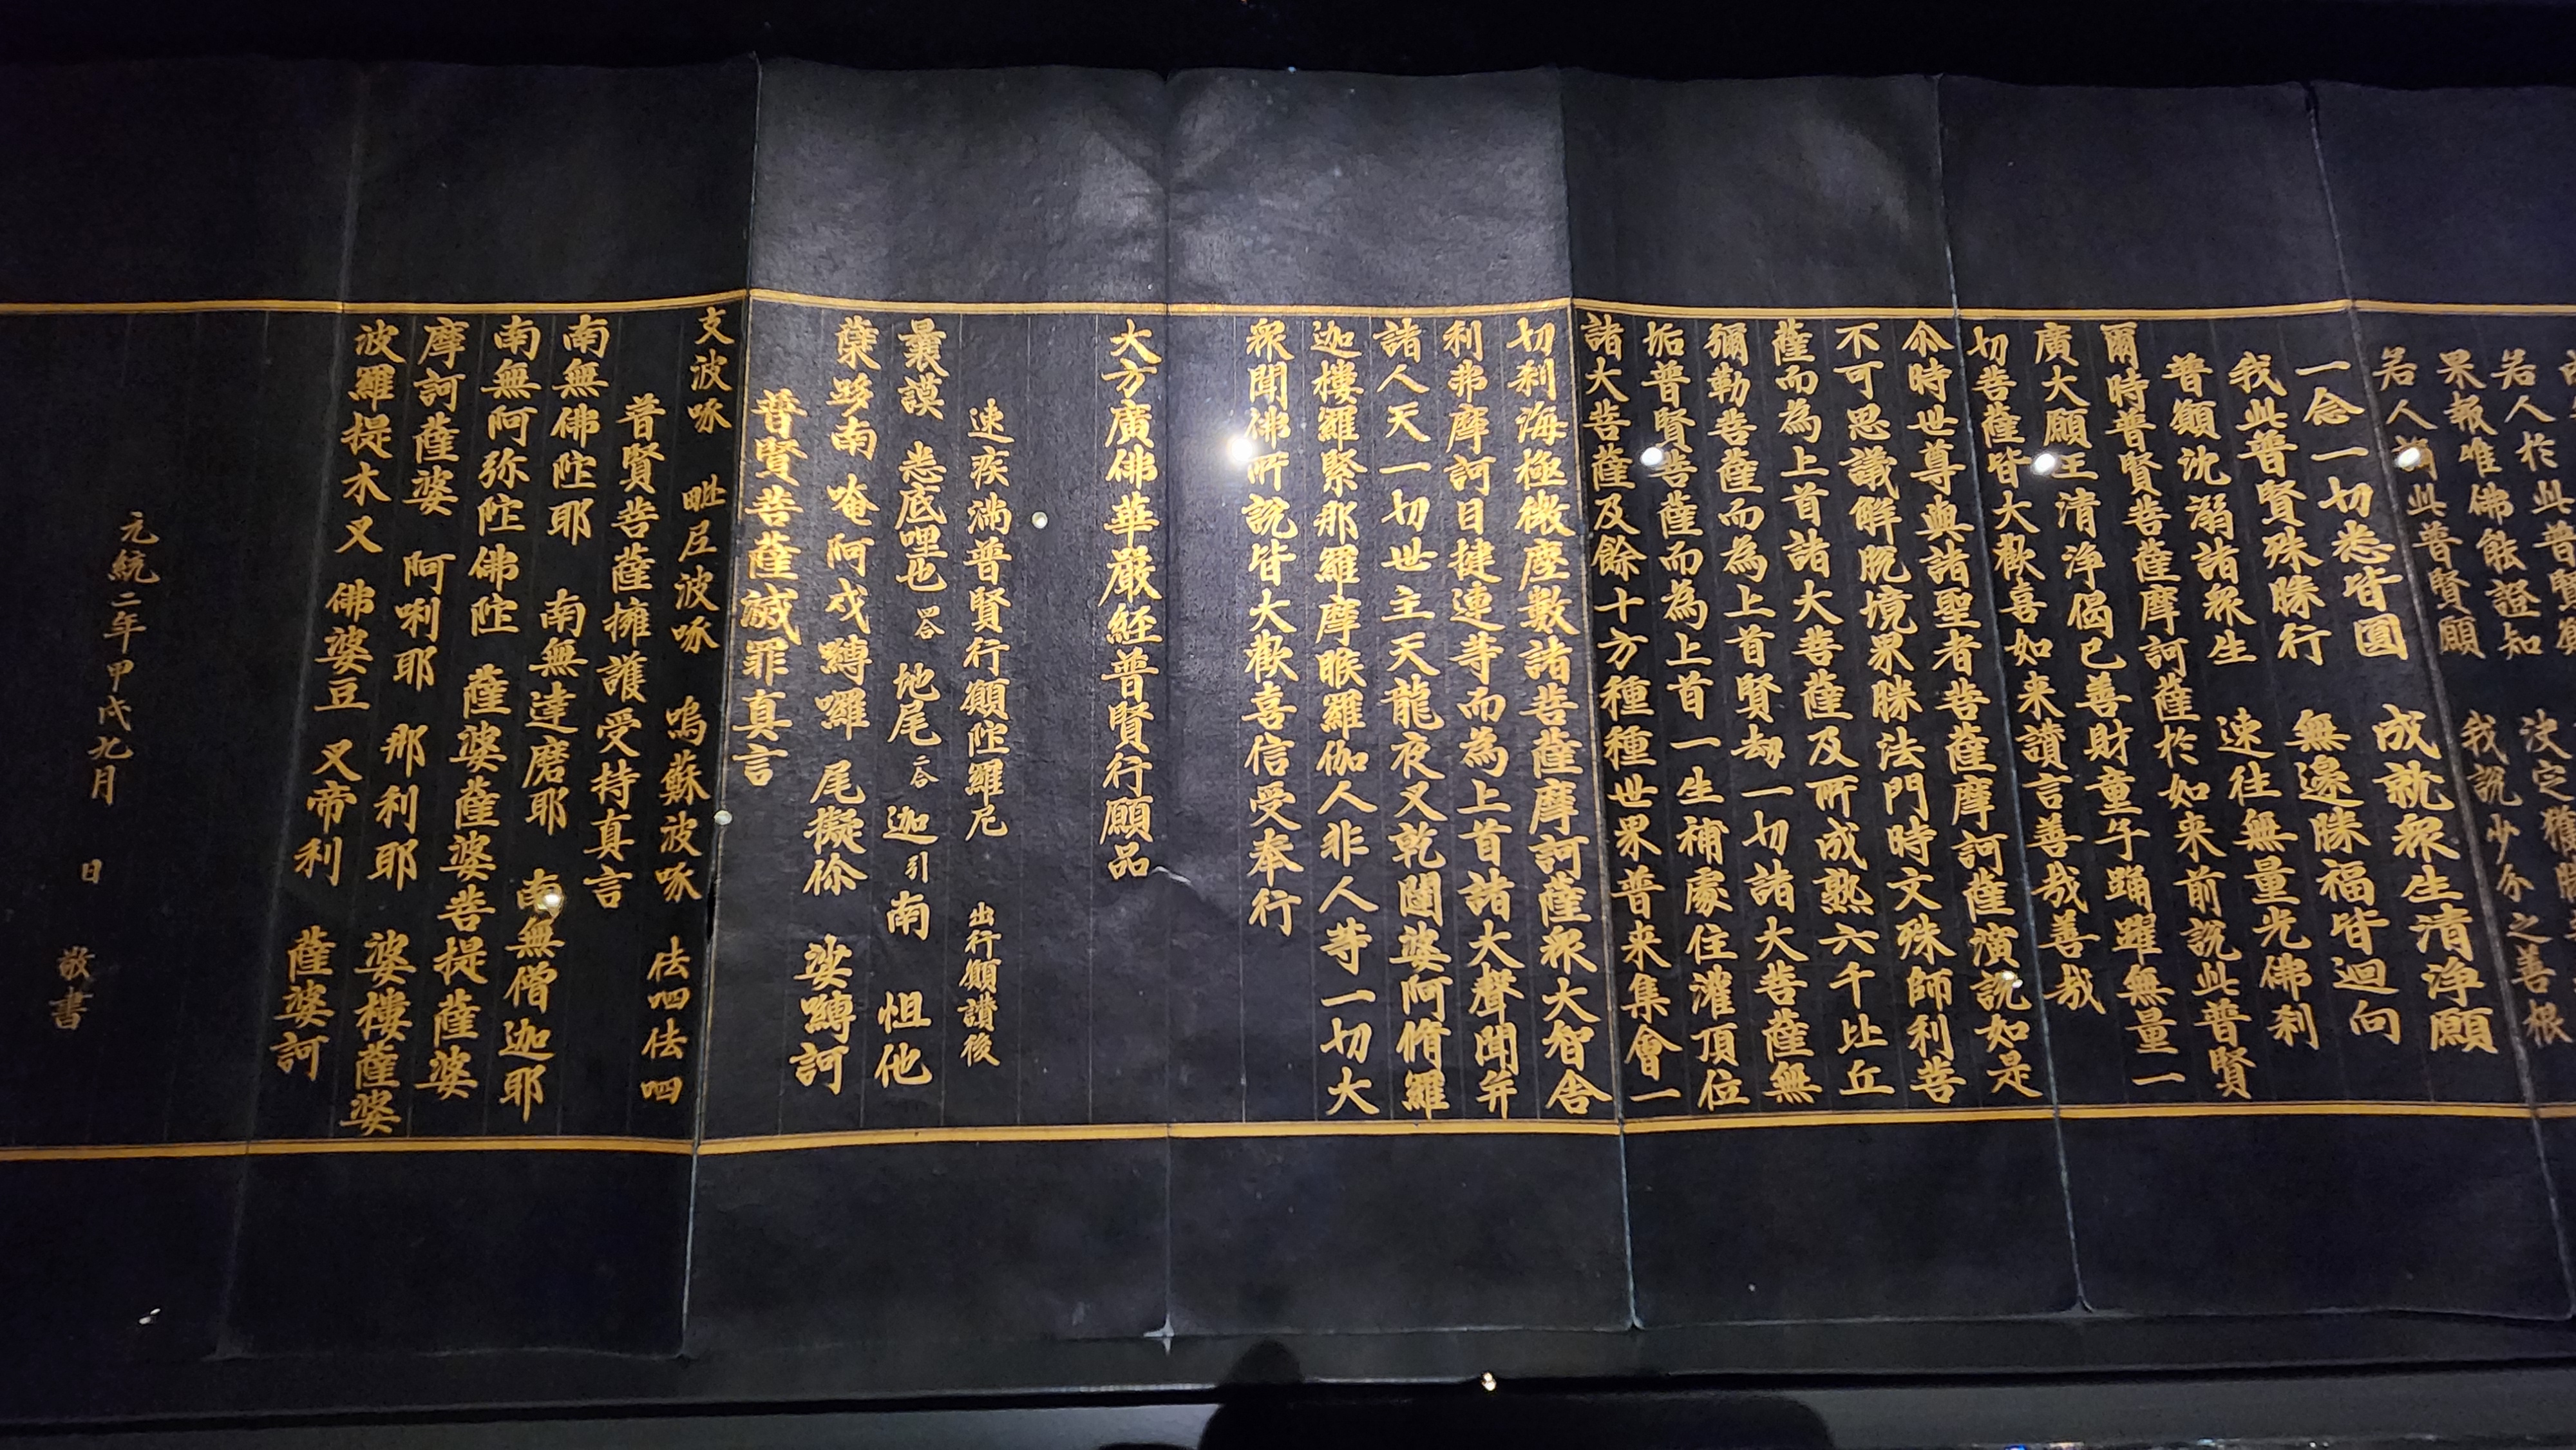 若人於此普賢願
果報唯佛能證知 我說少分之善根
若人誦此普賢願 成就衆生清淨願
一念一切悉皆圓 無邊勝福皆迴向
我此普賢殊勝行 速往無量光佛刹
普願沈溺諸衆生
爾時普賢菩薩摩訶薩於如来前說此普賢
廣大願王清淨偈已善財童子踊躍無量一
切菩薩皆大歡喜如来讚言善哉善哉
尒時世尊與諸聖者菩薩摩訶薩演說如是
不可思議解脫境界勝法門時文殊師利菩
薩而為上首諸大菩薩及所成熟六千比丘
彌勒菩薩而為上首賢劫一切諸大菩薩無
垢普賢菩薩而為上首一生補處住灌頂位
諸大菩薩及餘十方種種世界普来集會一
切刹海極微塵數諸菩薩摩訶薩衆大智舍
利弗摩訶目揵連等而為上首諸大聲聞并
諸人天一切世主天龍夜叉乾闥婆阿脩羅
迦樓羅緊那羅摩睺羅伽人非人等一切大
衆聞佛所說皆大歡喜信受奉行
大方廣佛華嚴経普賢行願品
速疾滿普賢行願陁羅尼 出行願讚後
曩謨 悉底哩也 四合 地尾 二合 迦 引 南 怛他
蘖哆南 唵 阿戍嚩囉 尾擬你 娑嚩訶
普賢菩薩滅罪真言
支波啄 毗尼波啄 嗚蘇波啄
普賢菩薩擁護受持真言
南無佛陁耶 南無達磨耶 南無僧迦耶
南無阿弥陁佛陁 薩婆薩婆菩提薩婆
摩訶薩婆 阿唎耶 那利耶 婆樓薩婆
波羅提木叉 佛婆豆 叉帝利 薩婆訶
元統二年甲戌九月 日 敬書